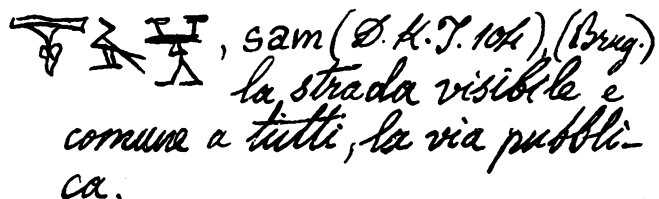 , sam (D. K. T. 104), (Brug.)
la strada visibile e
comune a tutti, la via pubbli-
ca.